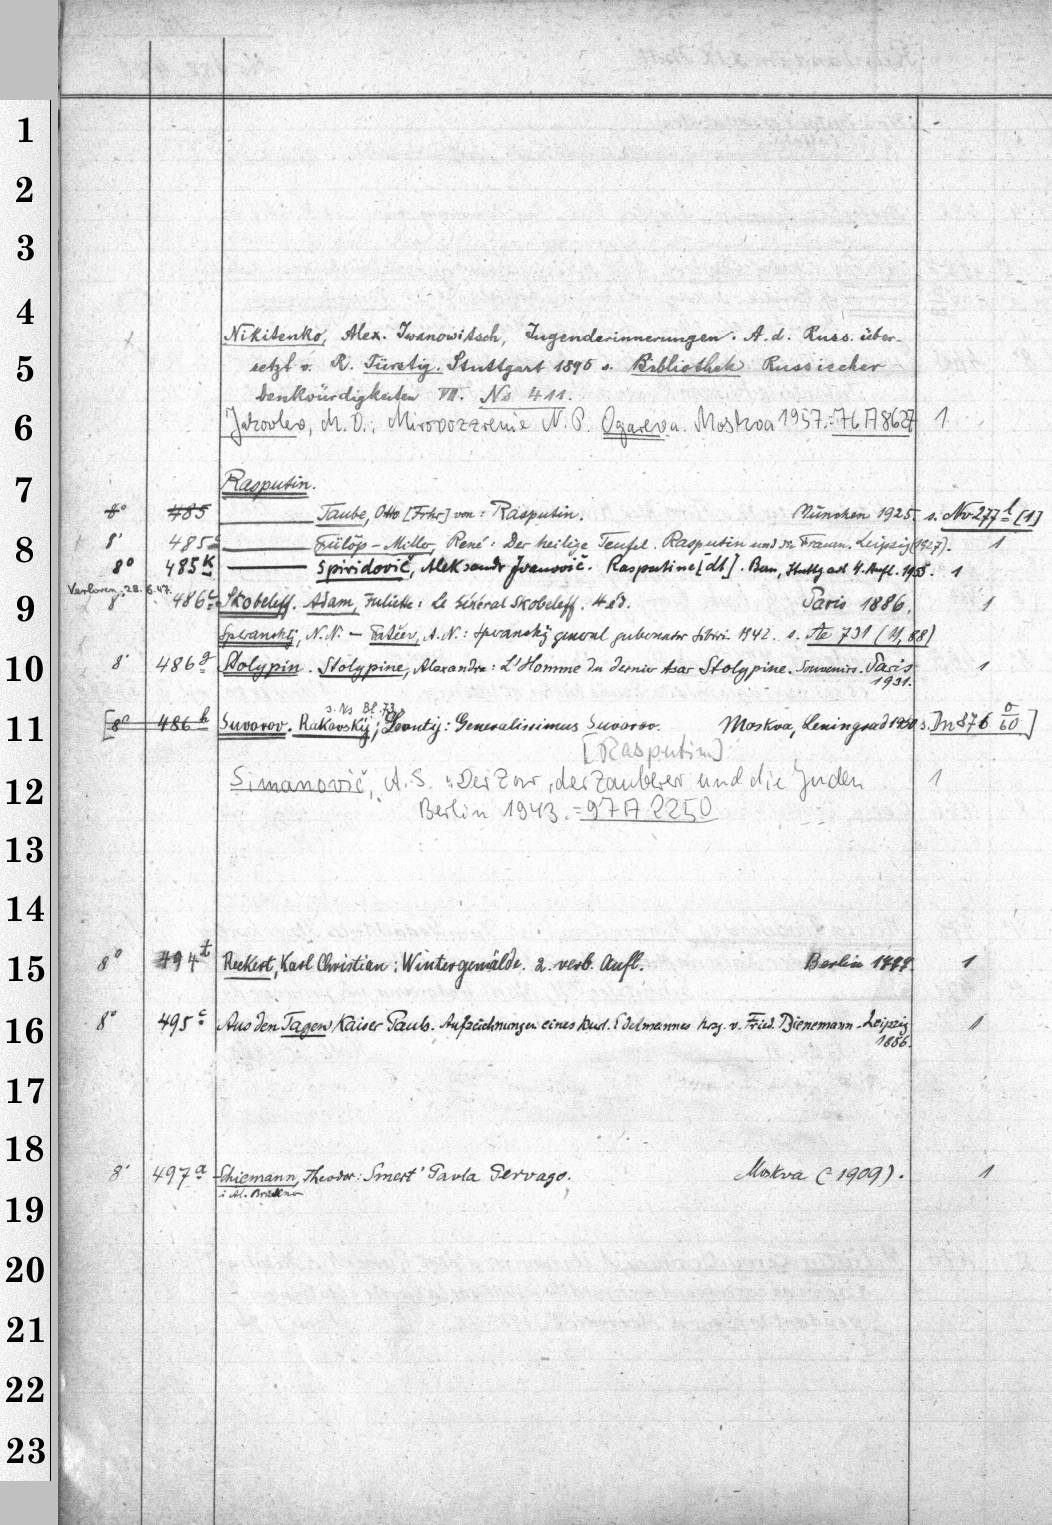 1
2
3
4
Nikitenko, Alex. Iwanowitsch, Jugenderinnerungen. A. d. Russ. über-
5
setzt v. R. Türstig. Stuttgart 1896 s. Bibliothek Russischer
Denkwürdigkeiten VII. Ns 411.
6
Jakovlev, M. V.: Mirovozzrenie N. P. Ogareva. Moskva 1957. = 76 A 8627 1
7
Rasputin.
8° 485 Taube, Otto [Frhr] von: Rasputin. München 1925. s. Nv 277 [1]
8
8° 485 Fülöp-Miller, René: Der heilige Teufel. Rasputin und die Frauen. Leipzig (1927). 1
8° 485 k Spiridovič, Aleksandr Ivanovič. Rasputine [dt]. Bern, Stuttgart 4. Aufl. 1955. 1
Verloren: 28. 6. 47.
9
8° 486 c Skobeleff. Adam, Juliette: Le Général Skobeleff. 4 éd. Paris 1886. 1
Speranskij, N. N. – Fatěev, A. N.: Speranskij general gubernator Sibiri. 1942. s. Ae 731 (11, 88)
10
8° 486 g Stolypin. Stolypine, Alexandra: L'Homme du dernier tsar Stolypine. Souvenirs. Paris 1
1931.
s. Ns Bl. 73
11
[8° 486 h Suvorov. Rakovskij, Leontij: Generalissimus Suvorov. Moskva, Leningrad 1950 s. Dn 876 0/60]
[Rasputin]
12
Simanovič, A. S.: Der Zar, der Zauberer und die Juden 1
Berlin 1943. = 97 A 2250
13
14
15
8° 494 t Reckert, Karl Christian: Wintergemälde. 2. verb. Aufl. Berlin 1777. 1
16
8° 495 c Aus den Tagen Kaiser Pauls. Aufzeichnungen eines kurl. Edelmannes hrsg. v. Fried. Bienemann. Leipzig 1
1886.
17
18
8° 497 a Schiemann, Theodor: Smert' Pavla Pervago. Moskva (1909). 1
i Al. Brückner
19
20
21
22
23